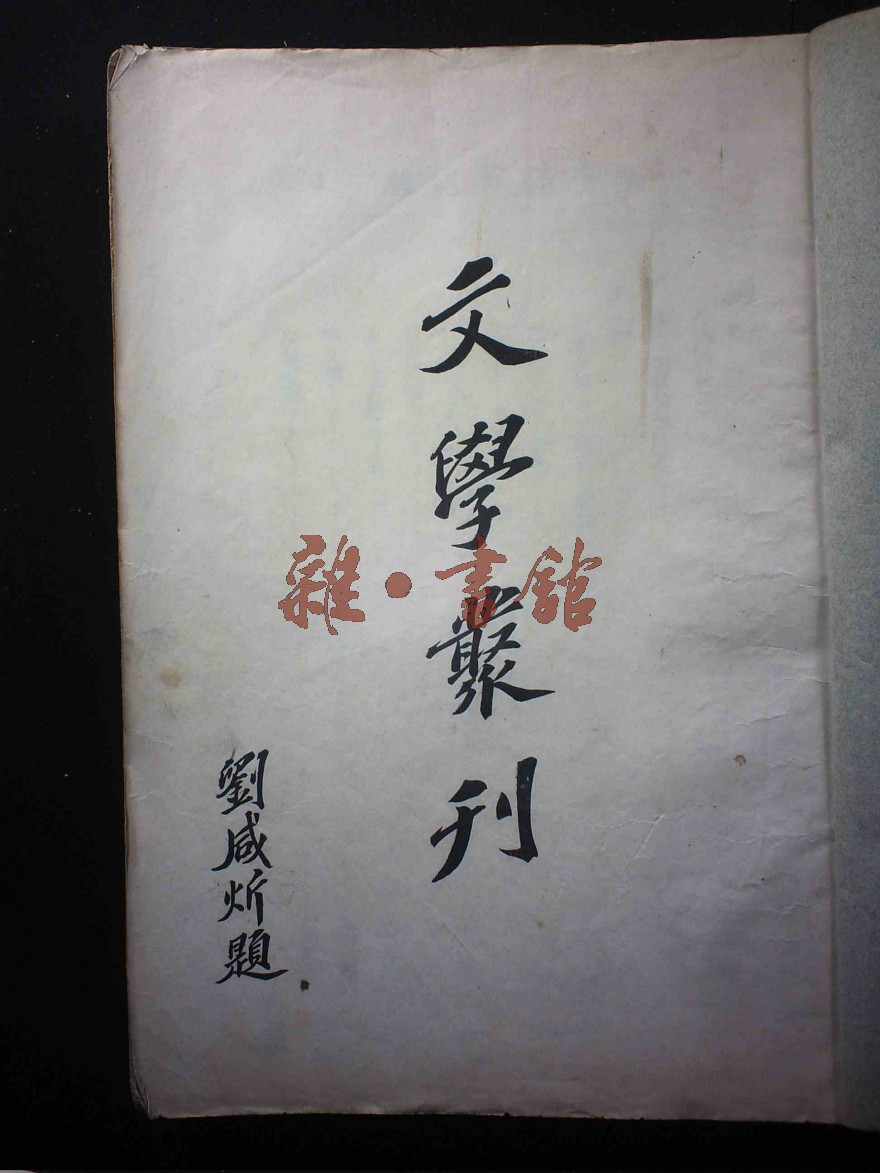 文學叢刊
劉咸炘題
雜·書館